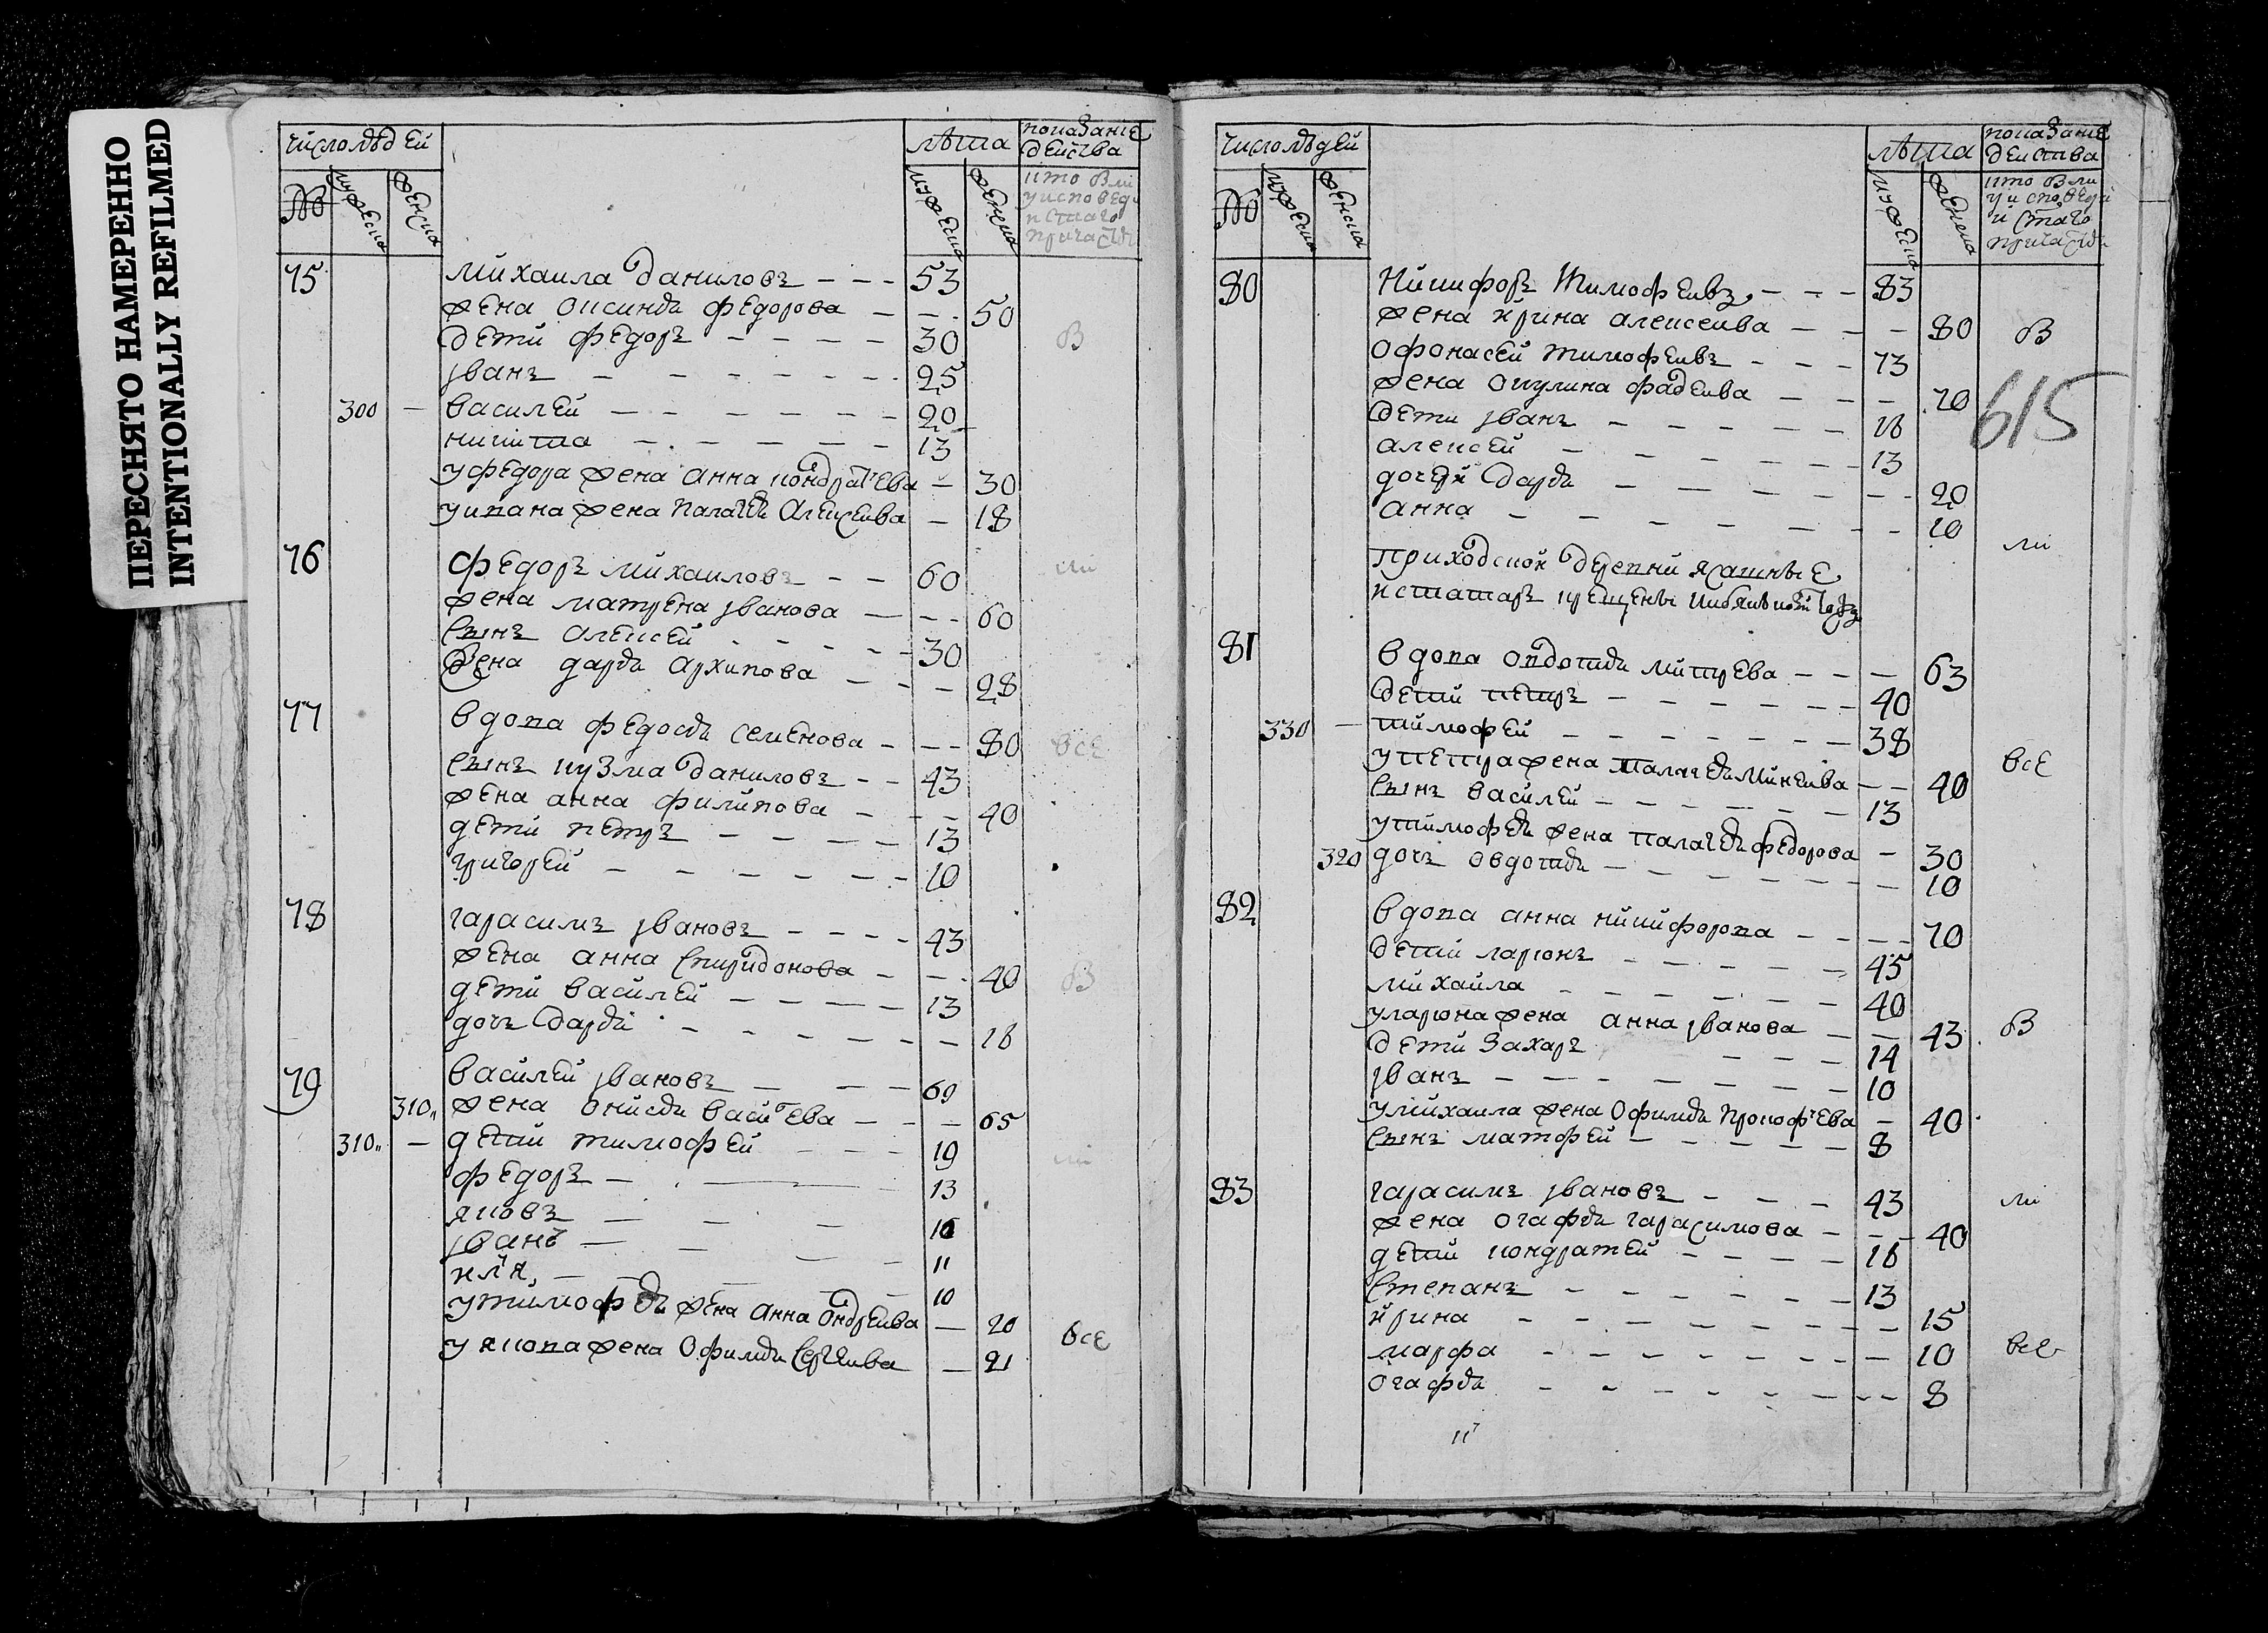 ПЕРЕСНЯТО НАМЕРЕННО
INTENTIONALLY REFILMED
число людей
лѣта
показание
действа
№
мужеска
женска
мужеска
женска
кто были
у исповеди
и стаго
причастия
75 михаила даниловъ - - - 53
жена оксинья федорова - - - 50
дети федоръ - - - - 30
В
иванъ - - - - - - 25
300 - василей - - - - - - 20
никита - - - - - 13
у федора жена анна кондратьева - 30
у ивана жена палагея алексеива - 18
76 федоръ михаиловъ - - 60
ли
жена матрена иванова - - - 60
сынъ алексей - - - - - 30
жена дарья архипова - - - 28
77 вдова федосья семенова - - - 80
все
сынъ кузма даниловъ - - 43
жена анна филипова - - - 40
дети петръ - - - - 13
григорей - - - - - - 10
78 гарасимъ ивановъ - - - - 43
жена анна спиридонова - - - 40
В
дети василей - - - - 13
дочь дарья - - - - - - 18
79 василей ивановъ - - - 69
310 жена онисья васильева - - - 65
310 - дети тимофей - - - 19
ли
федоръ - 13
яковъ - - - 16
иванъ - - - 11
илья - - - - 10
у тимофея жена анна ондреива - 20
все
у якова жена офимья сергеива - 21
число людей
лѣта
показание
действа
№
мужеска
женска
мужеска
женска
кто были
у исповеди
и стаго
причастия
80 никифоръ тимофеивъ - - - 83
жена ирина алексеива - - - 80
В
офонасей тимофеивъ - - - 73
жена окулина фадеива - - - 70
615
дети иванъ - - - - - 18
алексей - - - - - - 13
дочери дарья - - - - - - 20
анна - - - - - - - 10
ли
приходской деревни ясашные
ис татаръ крещены
81 вдова овдотья митрева - - - 63
дети петръ - - - - - - 40
330 - тимофей - - - - - - - 38
у петра жена палагея минеива - - 40
все
сынъ василей - - - - - - 13
у тимофея жена палагея федорова - 30
320 дочь овдотья - - - - - - - 10
82 вдова анна никифорова - - - - 70
дети ларионъ - - - - - 45
михаила - - - - - - - 40
у лариона жена анна иванова - - 43
В
дети захаръ - - - 14
иванъ - - - - - - - 10
у михаила жена офимья прокофьева - 40
сынъ матфей - - - - - 8
83 гарасимъ ивановъ - - - 43
ли
жена огафья гарасимова - - - 40
дети кондратей - - - - 18
степанъ - - - - - - 13
ирина - - - - - - - - 15
марфа - - - - - - - - 10
все
огафья - - - - - - - - 8